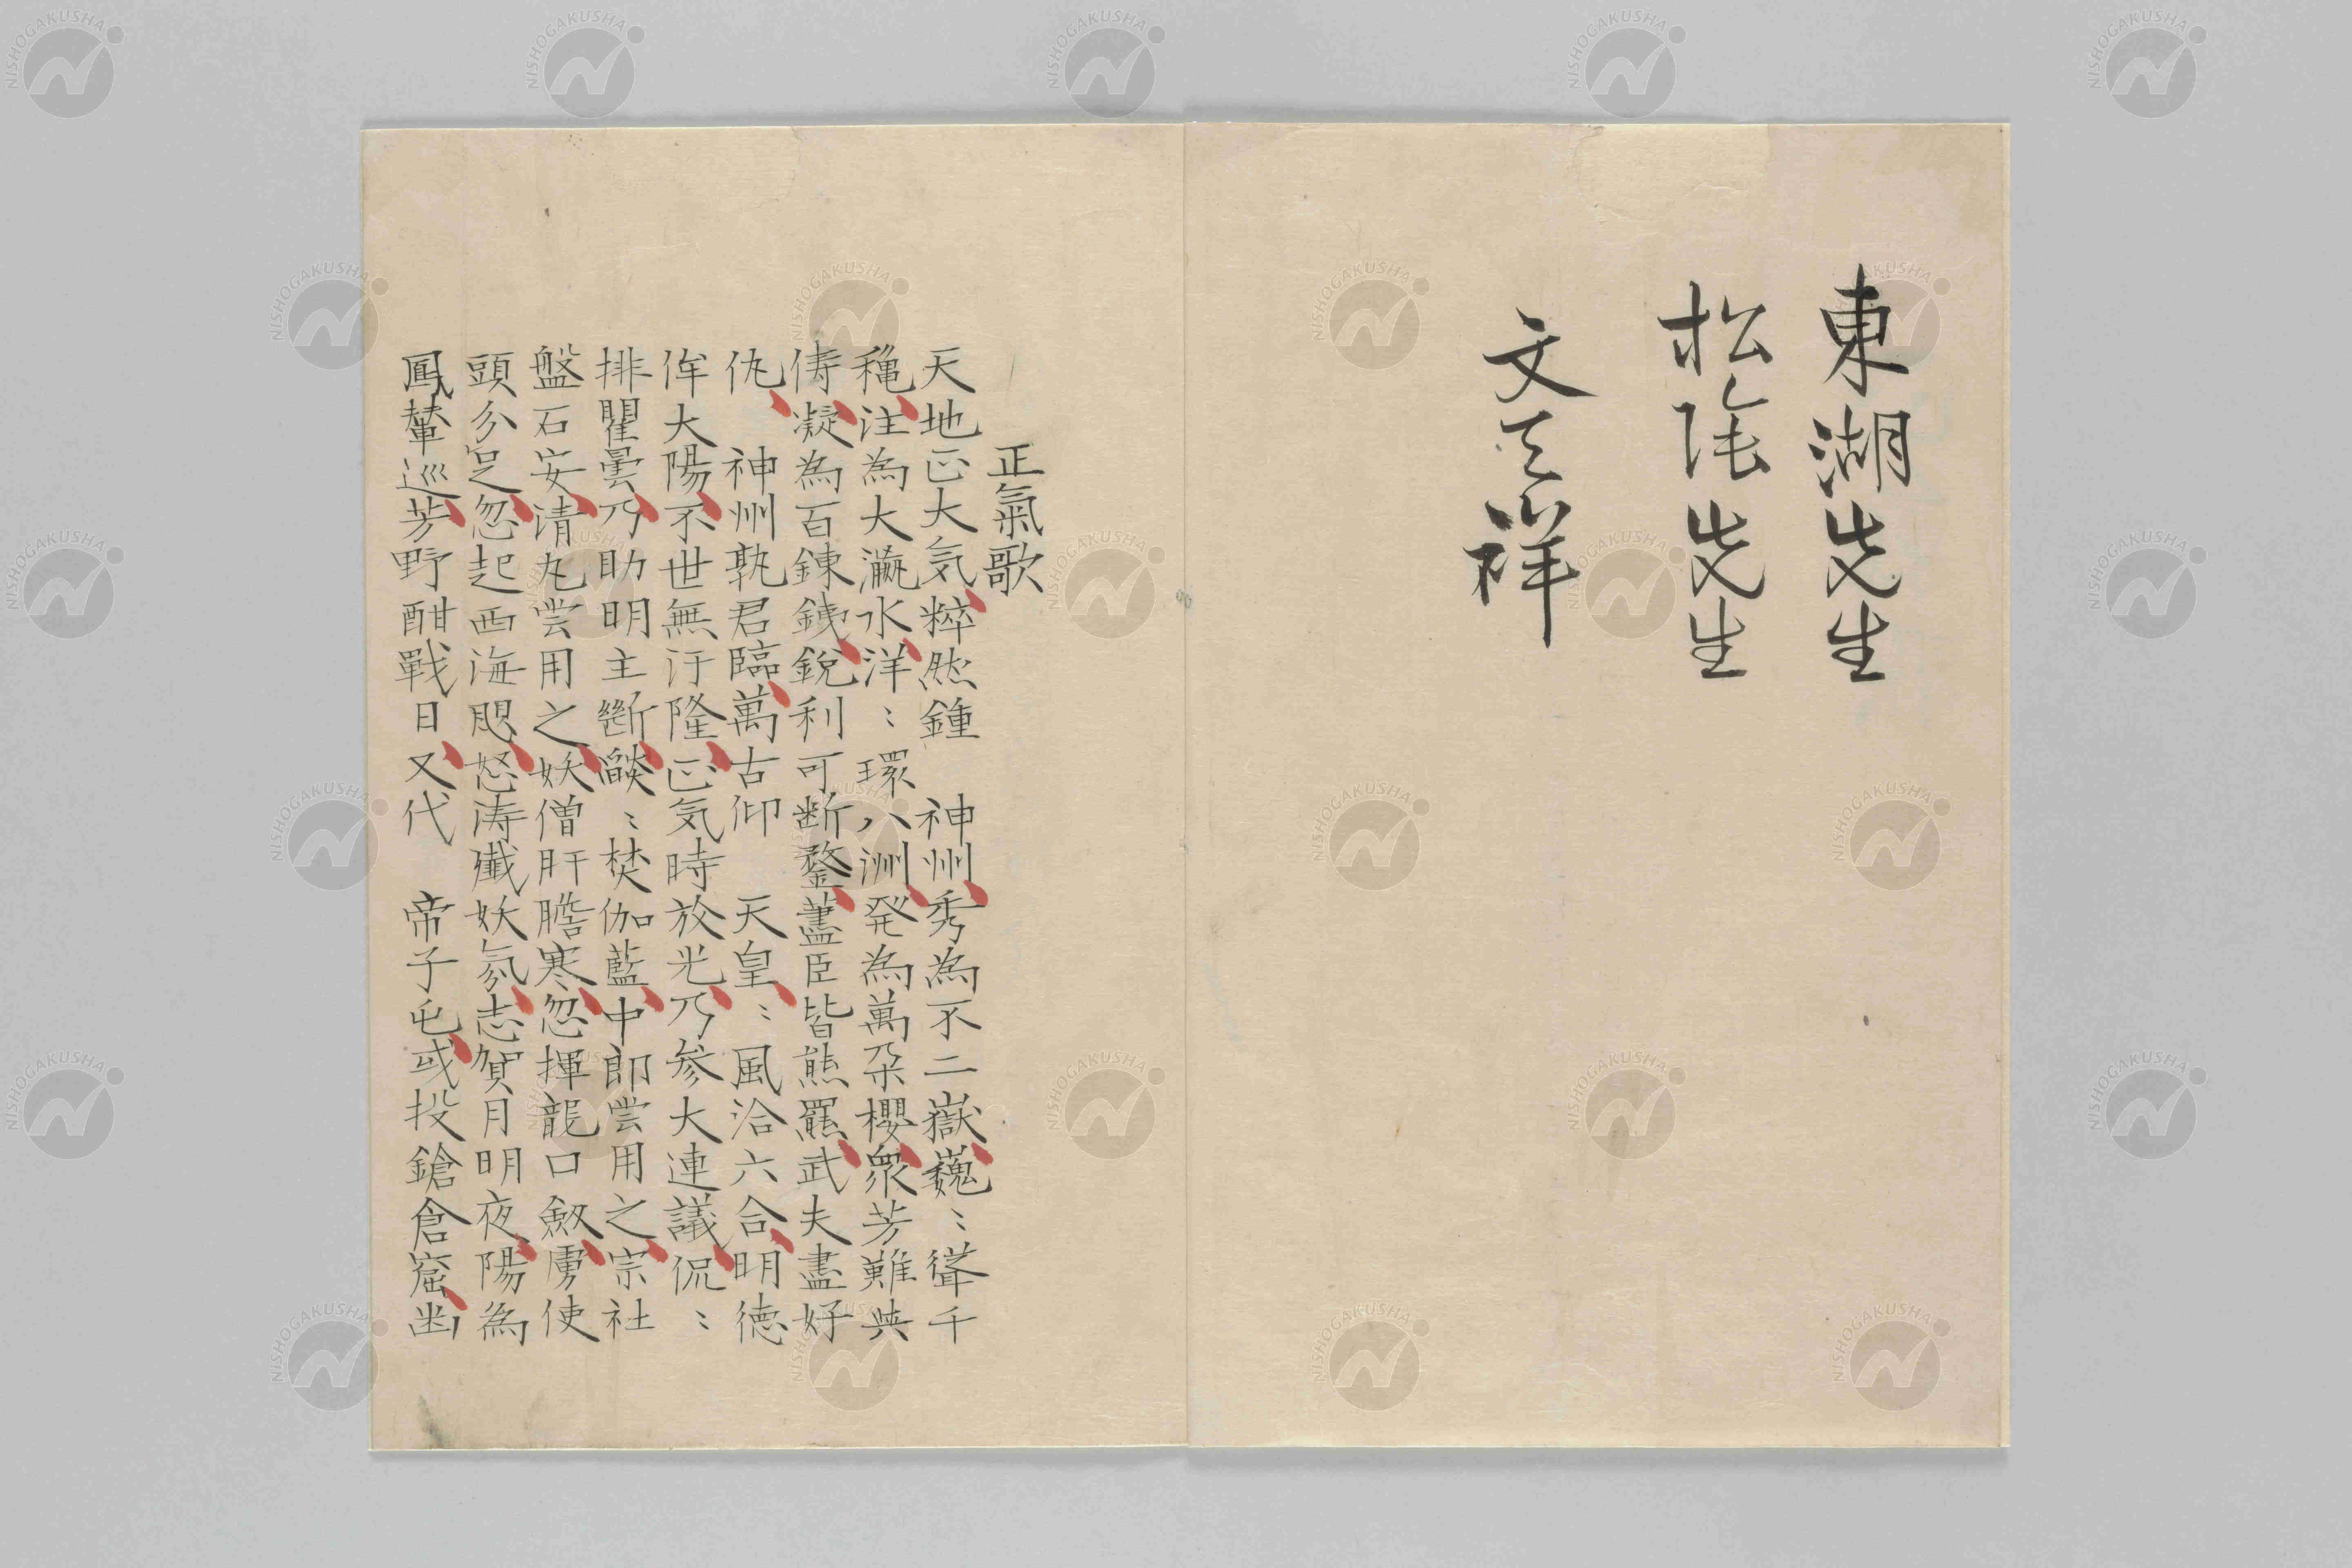 東湖先生
松陰先生
文天祥
正氣歌
天地正大気粹然鍾　神州秀為不二嶽巍〻聳千
穐注為大瀛水洋〻環八洲発為萬朶櫻衆芳難與
儔凝為百錬鉄鋭利可断鍪藎臣皆熊羆武夫盡好
仇　神州孰君臨萬古仰　天皇〻風洽六合明徳
侔大陽不世無汙隆正気時放光乃参大連議侃〻
排瞿曇乃助明主断燄〻焚伽藍中郎嘗用之宗社
盤石安清丸嘗用之妖僧肝膽寒忽揮龍口劍虜使
頭分足忽起西海颶怒涛殱妖氛志賀月明夜陽為
鳳輦巡芳野酣戰日又代　帝子屯或投鎌倉窟幽
NISHOGAKUSHA